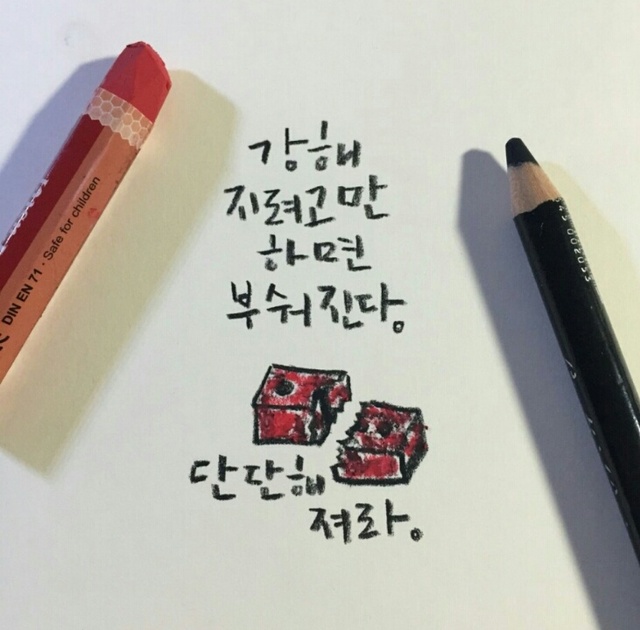 강해
지려고만
하면
부숴진다.
단단해
져라.
DIN EN 71 · Safe for children